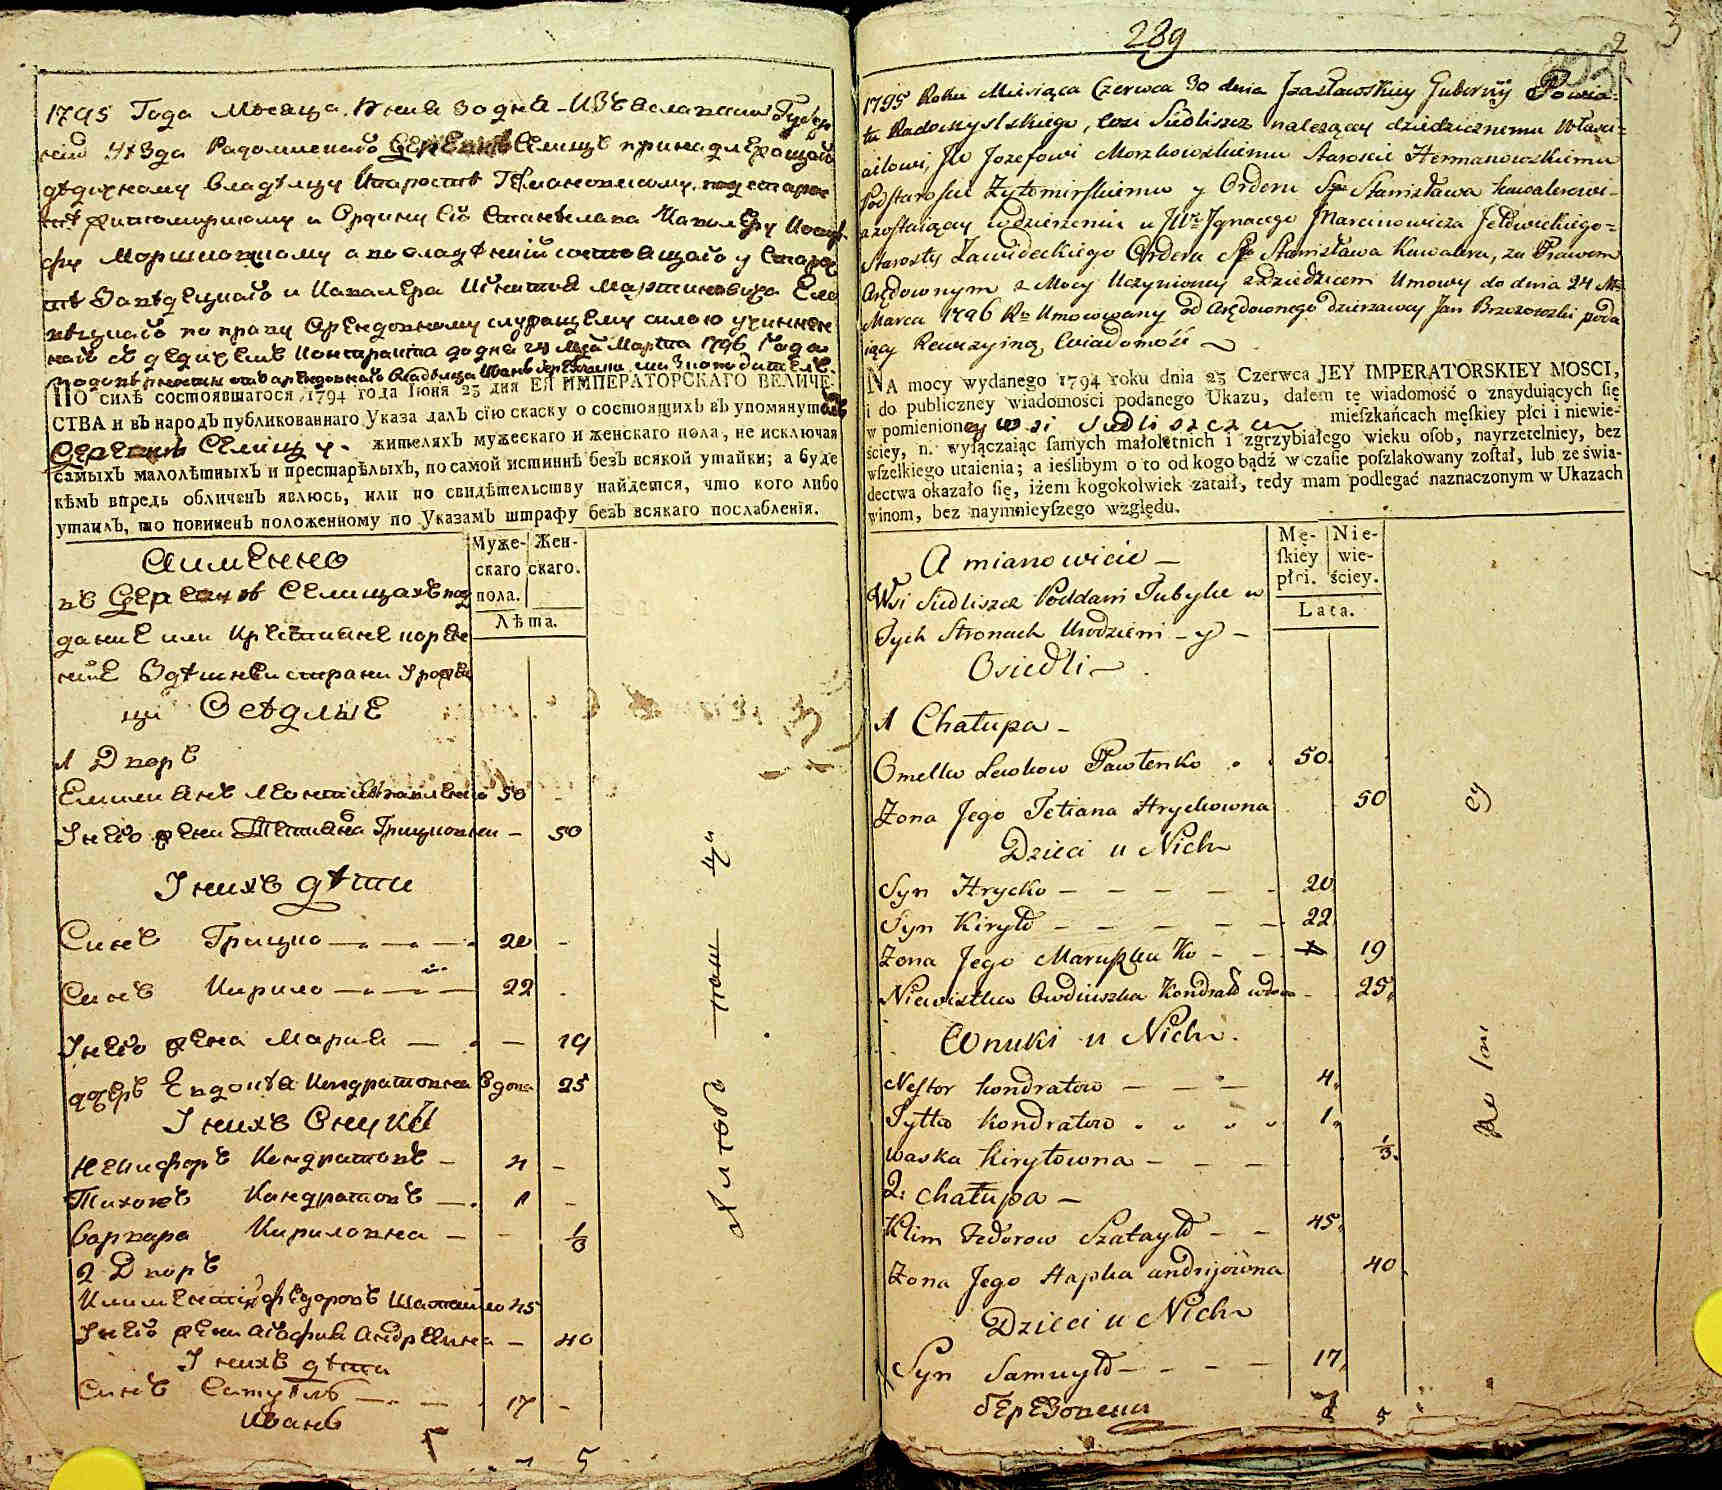 1795 Года Месяца Июня 30 дня Изяславской Губер
ній Уезда Радомысла Селищъ принадлежащаго
дедичному владелцу старосте Германовскому, подстарос
те житомирскому и Ордину Его Станислава Кавалеру Иосиф
фу Моршковскому а во владеній состоящаго у старос
те Завидецкаго и Кавалера Игнатия Мартиновича
по праву Арендовному служащему силою учинен
наго съ дедичемъ контракта до дня 24 Марта 1796 Года
ПО силѣ состоявшагося 1794 года Іюня 23 дня ЕЯ ИМПЕРАТОРСКАГО ВЕЛИЧЕ-
СТВА и въ народъ публикованнаго Указа далъ сїю скаску о состоящихъ въ упомянутомъ
Селищу. жителяхъ мужескаго и женскаго пола, не исключая
самыхъ малолѣтныхъ и престарѣлыхъ, по самой истиннѣ безъ всякой утайки; а буде
кѣмъ впредь обличенъ явлюсь, или по свидѣтельству найдется, что кого либо
утаилъ, то повиненъ положенному по Указамъ штрафу безъ всякаго послабленїя.
Муже-скаго пола.
Жен-скаго.
Лѣта.
Аименно
въ Селищахъ под
дание или Крестиане корен
ние Здешней страни Урожен
ци Оседлые
1 Дворъ
Емилианъ Леонтиевъ Павленко 50 -
У него жена Татиана Грицковна - 50
У нихъ дети
Синъ Грицко 20 -
Синъ Кирило 22 -
У него жена Мария - 19
Евдокия Кондратовна вдова 25
У нихъ Внуки
Никифоръ Кондратовъ - 4 -
Тихонъ Кондратовъ - 1 -
Варвара Кириловна - - 1/3
2 Дворъ
Климентий Федоровъ Шатайло 45
У него жена Агафия Андреевна - 40
У нихъ дети
Синъ Самуилъ 17 -
Иванъ
7 5
239
2
3
1795 Roku Miesiąca Czerwca 30 dnia Jzasławskiey Guberniy Powia-
tu Radomyslskiego, wsi Siedliszcz nalezącey dziedzicznemu Własci-
cilowi, JW Jozefowi Morzkowskiemu Staroscie Hermanowskiemu
Podstaroscie Zytomirskiemu y Orderu Sgo Stanisława Kawalerowi-
a zostaiącey wdzierzeniu u JWo Jgnacego Marcinowicza Jełowickiego-
Starosty Zawideckiego Orderu Sgo Stanisława Kawalera, za Prawem
Arędownym z Mocy Uczynioney zdziedzicem Umowy do dnia 24 Ms
Marca 1796 Ru Umocowany od Arędownego dzierzawcy Jan Brzozowski poda
iący Rewizyiną Wiadomość
NA mocy wydanego 1794 roku dnia 23 Czerwca JEY IMPERATORSKIEY MOSCI,
i do publiczney wiadomości podanego Ukazu, dałem tę wiadomość o znayduiących się
w pomienioney wsi Siedliszczu mieſzkańcach męſkiey płci i niewie-
ściey, n. wyłączaiąc ſamych małoletnich i zgrzybiałego wieku oſob, nayrzetelniey, bez
wſzelkiego utaienia; a ieślibym o to od kogo bądź w czaſie poſzlakowany zoſtał, lub ze świa-
dectwa okazało ſię, iżem kogokolwiek zataił, tedy mam podlegać naznaczonym w Ukazach
winom, bez naymnieyſzego względu.
Mę-ſkiey płci.
Nie-wie-ściey.
Lata.
A mianowicie -
Wsi Siedliszcz Poddani Tubylce w
Tych Stronach Urodzieni - y -
Osiedli
1 Chałupa -
Omelko Lewkow Pawłenko 50
Zona Jego Tetiana Hryckowna 50
Dzieci u Nich
Syn Hrycko 20
Syn Kiryło 22
Zona Jego Maruszka 19
Niewistka Owdiuszka Kondrat wdowa 25
Wnuki u Nich.
Nestor Kondratow 4
Tytko Kondratow 1
Waska Kiryłowna 1/3
2: chałupa -
Klim Fedorow Szatayło 45
Zona Jego Hapka andrijowna 40
Dzieci u Nich
Syn Samuyło 17
Березовски
7 5